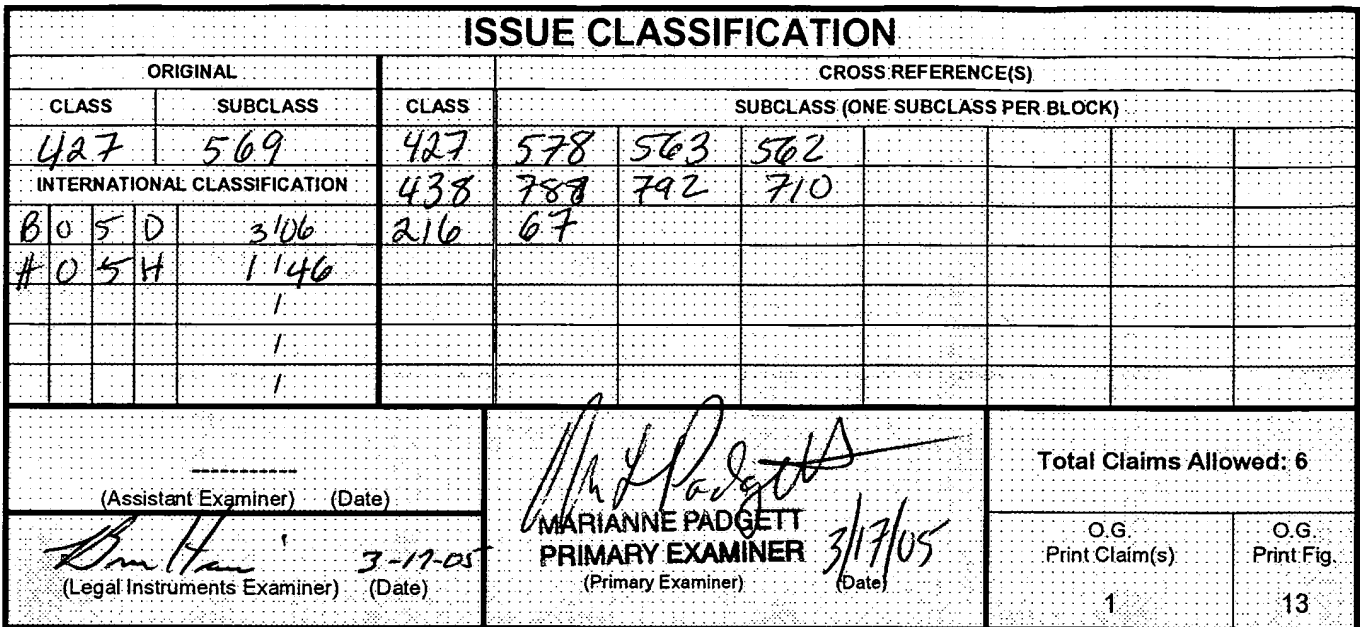 ISSUE CLASSIFICATION
ORIGINAL CROSS REFERENCE(S)
CLASS SUBCLASS CLASS SUBCLASS (ONE SUBCLASS PER BLOCK)
427 569 427 578 563 562
INTERNATIONAL CLASSIFICATION 438 788 792 710
B 0 5 D 3/06 216 67
H 0 5 H 1/46
/
/
/
----------
(Assistant Examiner) (Date)
3-17-05
(Legal Instruments Examiner) (Date)
Padgett
MARIANNE PADGETT
PRIMARY EXAMINER 3/17/05
(Primary Examiner) (Date)
Total Claims Allowed: 6
O.G. Print Claim(s) O.G. Print Fig.
1 13